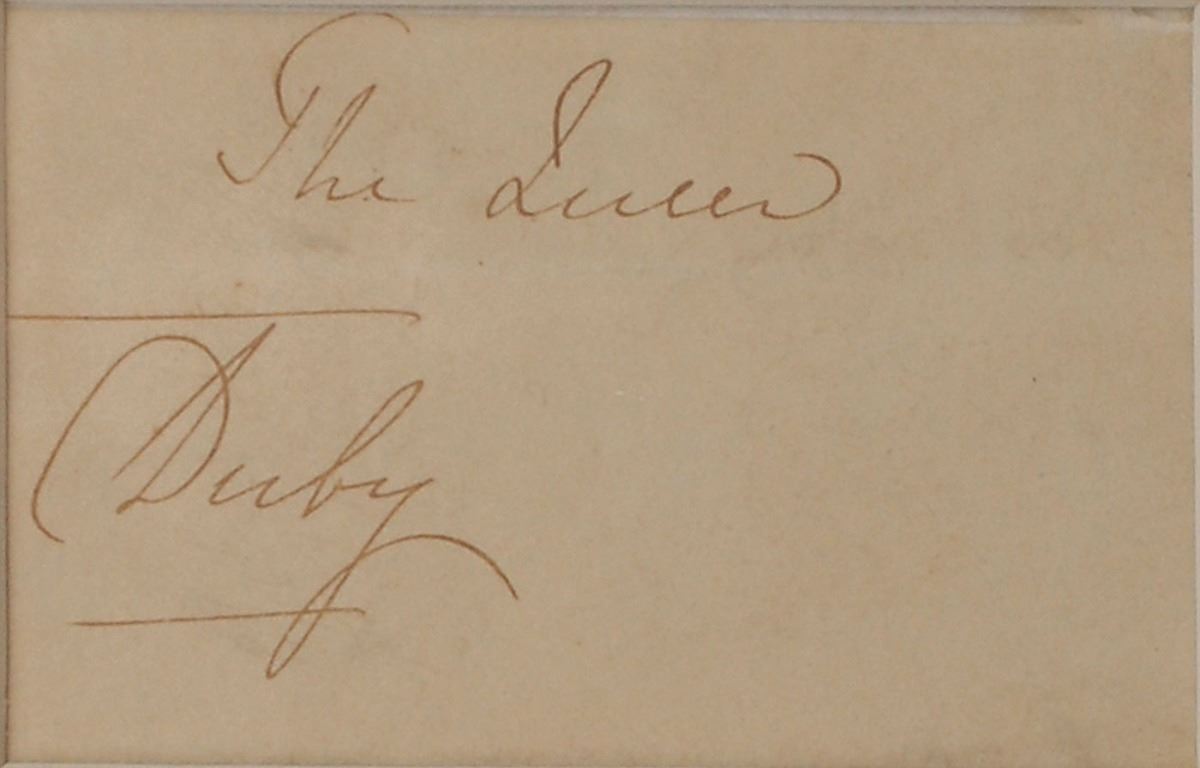 The Queen
Derby